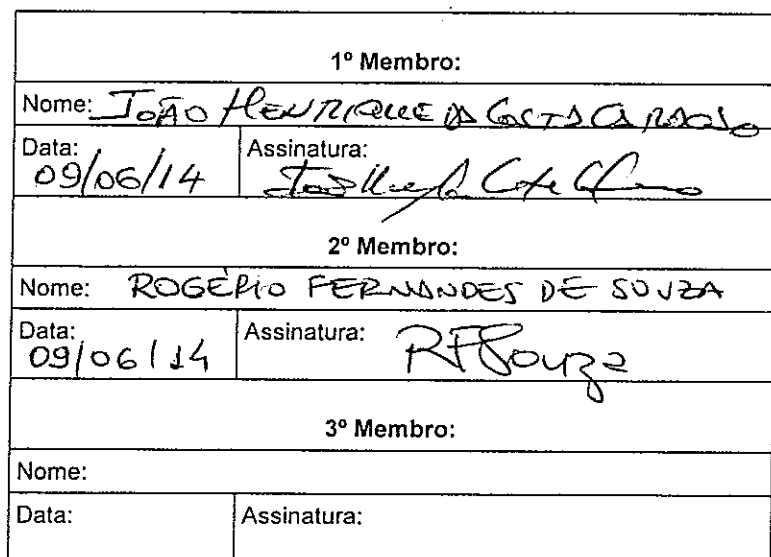 1º Membro:
Nome: JOÃO HENRIQUE DA COSTA CARDOSO
Data: Assinatura:
09/06/14
2º Membro:
Nome: ROGÉRIO FERNANDES DE SOUZA
Data: Assinatura: RFSouza
09/06/14
3º Membro:
Nome:
Data: Assinatura: